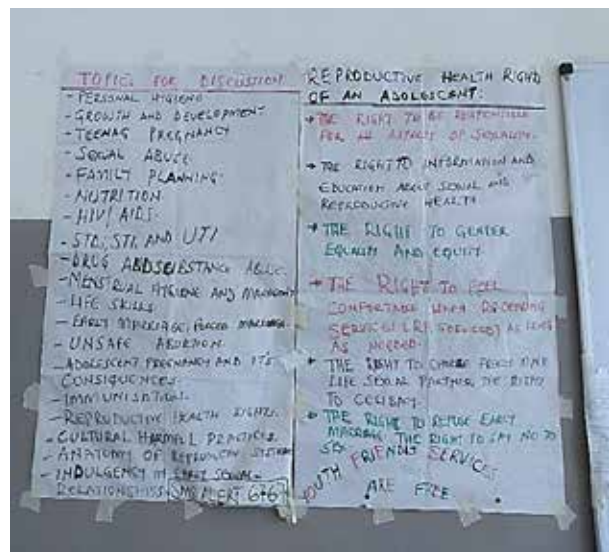 TOPIC FOR DISCUSTION
- PERSONAL HYGIENE
- GROWTH AND DEVELOPMENT
- TEENAG PREGNANCY
- SEXUAL ABUSE
- FAMILY PLANNING
- NUTRITION
- HIV/AIDS.
- STD, STI, AND UTI
- DRUG ABDSUBSTANCE ABUSE
- MENSTRUAL HYGIENE AND
- LIFE SKILLS
- EARLY MARRIAGE, FORCED MARRIAGE.
- UNSAFE ABORTION.
- ADOLESCENT PREGNANCY AND IT'S
CONSIQUENCES
- IMMUNISATION
- REPRODUCTIVE HEALTH RIGHTS.
- CULTURAL PRACTICES
- ANATOMY OF SYSTEM
- INDULGENCY IN EARLY SEXUAL
RELATIONSHIPS SMS ALERT
REPRODUCTIVE HEALTH RIGHD
OF AN ADOLESCANT:
→ THE RIGHT TO BE
FOR ASPECTS OF SEXUALITY.
→ THE RIGHT TO INFORMATION AND
EDUCATION ABOUT SEXUAL AND
REPRODUCTIVE HEALTH
→ THE RIGHT TO
EQUALITY AND EQUITY
→ THE RIGHT TO FEEL
COMFORTABLE WHEN
AS LONG
AS NEEDED.
→ THE RIGHT TO
LIFE SEXUAL PARTNER, THE RIGHT
TO
→ THE RIGHT TO REFUSE EARLY
MARRIAGE THE RIGHT TO SAY NO TO
SEX
YOUTH FRIENDLY SERVICES
ARE FREE